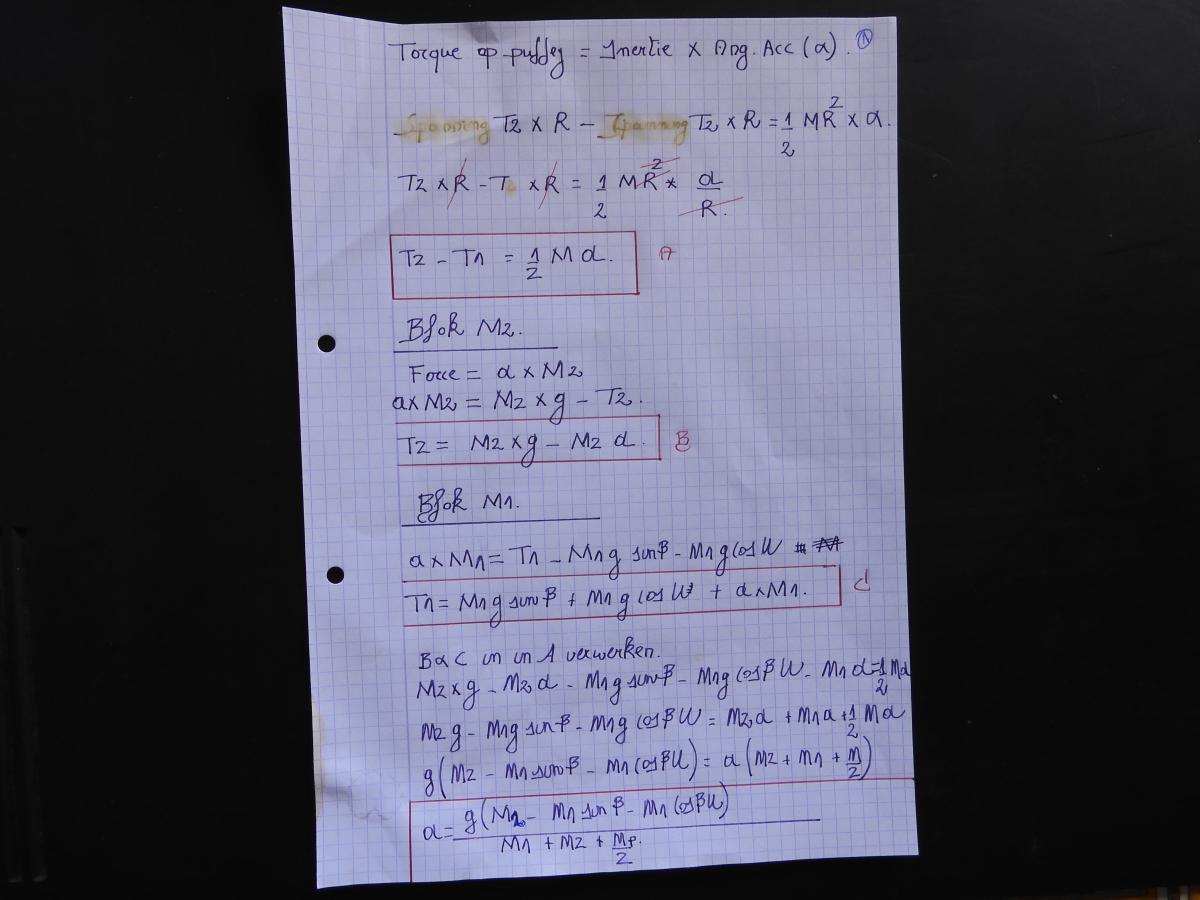 Torque op pulley = Inertie × Ang. Acc (α). ①
Spanning T2 × R - Spanning T2 × R = 1/2 MR² × α.
T2 × R - T × R = 1/2 MR² × a/R.
T2 - T1 = 1/2 M a. A
Blok M2.
Force = a × M2
a × M2 = M2 × g - T2.
T2 = M2 × g - M2 a. B
Blok M1.
a × M1 = T1 - M1 g sin β - M1 g cos U
T1 = M1 g sin β + M1 g cos U + a × M1. C
B & C in in A verwerken.
M2 × g - M2 a - M1 g sin β - M1 g cos β U - M1 a = 1/2 Ma
M2 g - M1 g sin β - M1 g cos β U = M2 a + M1 a + 1/2 Ma
g (M2 - M1 sin β - M1 cos β U) = a (M2 + M1 + M/2)
a = g (M2 - M1 sin β - M1 cos β U) / M1 + M2 + Mp/2.